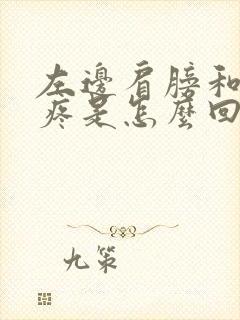 左邊肩膀和
疼是怎麼回
九策